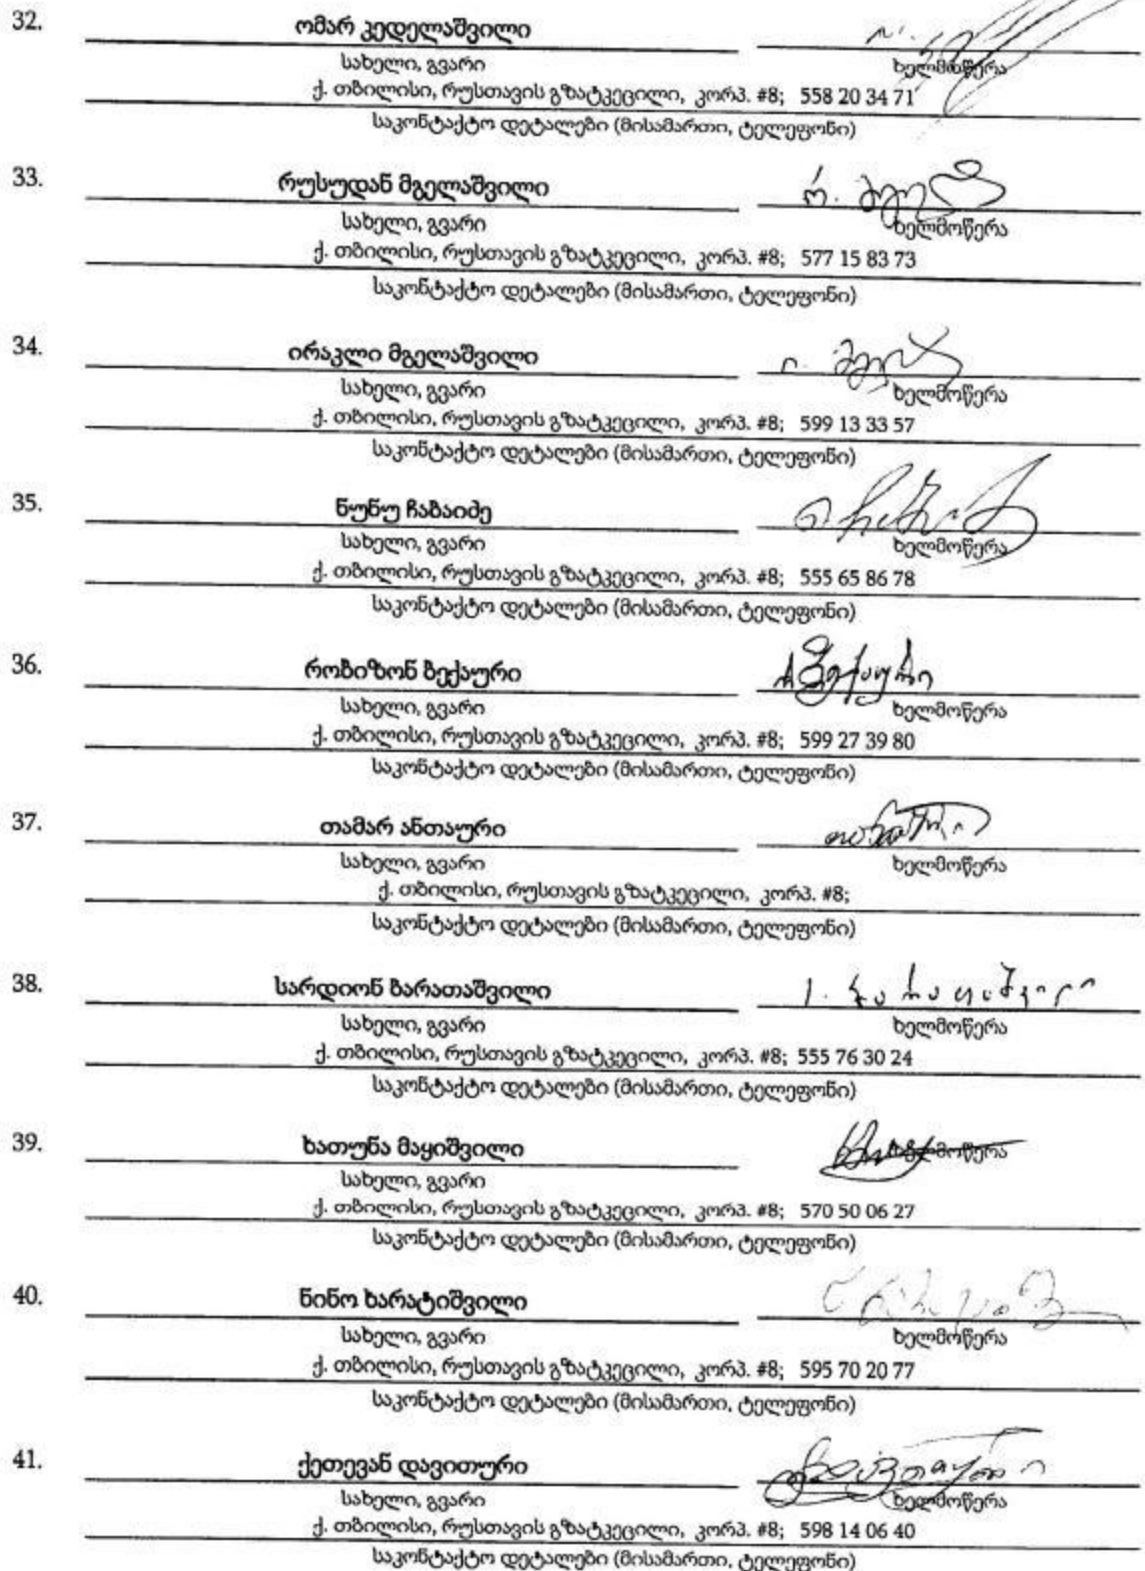 32. ომარ კედელაშვილი
სახელი, გვარი ხელმოწერა
ქ. თბილისი, რუსთავის გზატკეცილი, კორპ. #8; 558 20 34 71
საკონტაქტო დეტალები (მისამართი, ტელეფონი)
33. რუსუდან მგელაშვილი
სახელი, გვარი ხელმოწერა
ქ. თბილისი, რუსთავის გზატკეცილი, კორპ. #8; 577 15 83 73
საკონტაქტო დეტალები (მისამართი, ტელეფონი)
34. ირაკლი მგელაშვილი
სახელი, გვარი ხელმოწერა
ქ. თბილისი, რუსთავის გზატკეცილი, კორპ. #8; 599 13 33 57
საკონტაქტო დეტალები (მისამართი, ტელეფონი)
35. ნუნუ ჩაბაიძე
სახელი, გვარი ხელმოწერა
ქ. თბილისი, რუსთავის გზატკეცილი, კორპ. #8; 555 65 86 78
საკონტაქტო დეტალები (მისამართი, ტელეფონი)
36. რობიზონ ბექაური
სახელი, გვარი ხელმოწერა
ქ. თბილისი, რუსთავის გზატკეცილი, კორპ. #8; 599 27 39 80
საკონტაქტო დეტალები (მისამართი, ტელეფონი)
37. თამარ ანთაური
სახელი, გვარი ხელმოწერა
ქ. თბილისი, რუსთავის გზატკეცილი, კორპ. #8;
საკონტაქტო დეტალები (მისამართი, ტელეფონი)
38. სარდიონ ბარათაშვილი ს. ბარათაშვილი
სახელი, გვარი ხელმოწერა
ქ. თბილისი, რუსთავის გზატკეცილი, კორპ. #8; 555 76 30 24
საკონტაქტო დეტალები (მისამართი, ტელეფონი)
39. ხათუნა მაყიშვილი ხელმოწერა
სახელი, გვარი
ქ. თბილისი, რუსთავის გზატკეცილი, კორპ. #8; 570 50 06 27
საკონტაქტო დეტალები (მისამართი, ტელეფონი)
40. ნინო ხარატიშვილი
სახელი, გვარი ხელმოწერა
ქ. თბილისი, რუსთავის გზატკეცილი, კორპ. #8; 595 70 20 77
საკონტაქტო დეტალები (მისამართი, ტელეფონი)
41. ქეთევან დავითური
სახელი, გვარი ხელმოწერა
ქ. თბილისი, რუსთავის გზატკეცილი, კორპ. #8; 598 14 06 40
საკონტაქტო დეტალები (მისამართი, ტელეფონი)